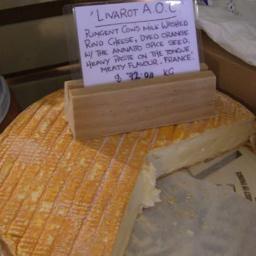 'LIVAROT A.O.C'
PUNGENT COWS MILK WASHED
RIND CHEESE, DYED ORANGE
W/ THE ANNATO SPICE SEED.
HEAVY PASTE ON THE TONGUE,
MEATY FLAVOUR. FRANCE.
$ 72.00 KG